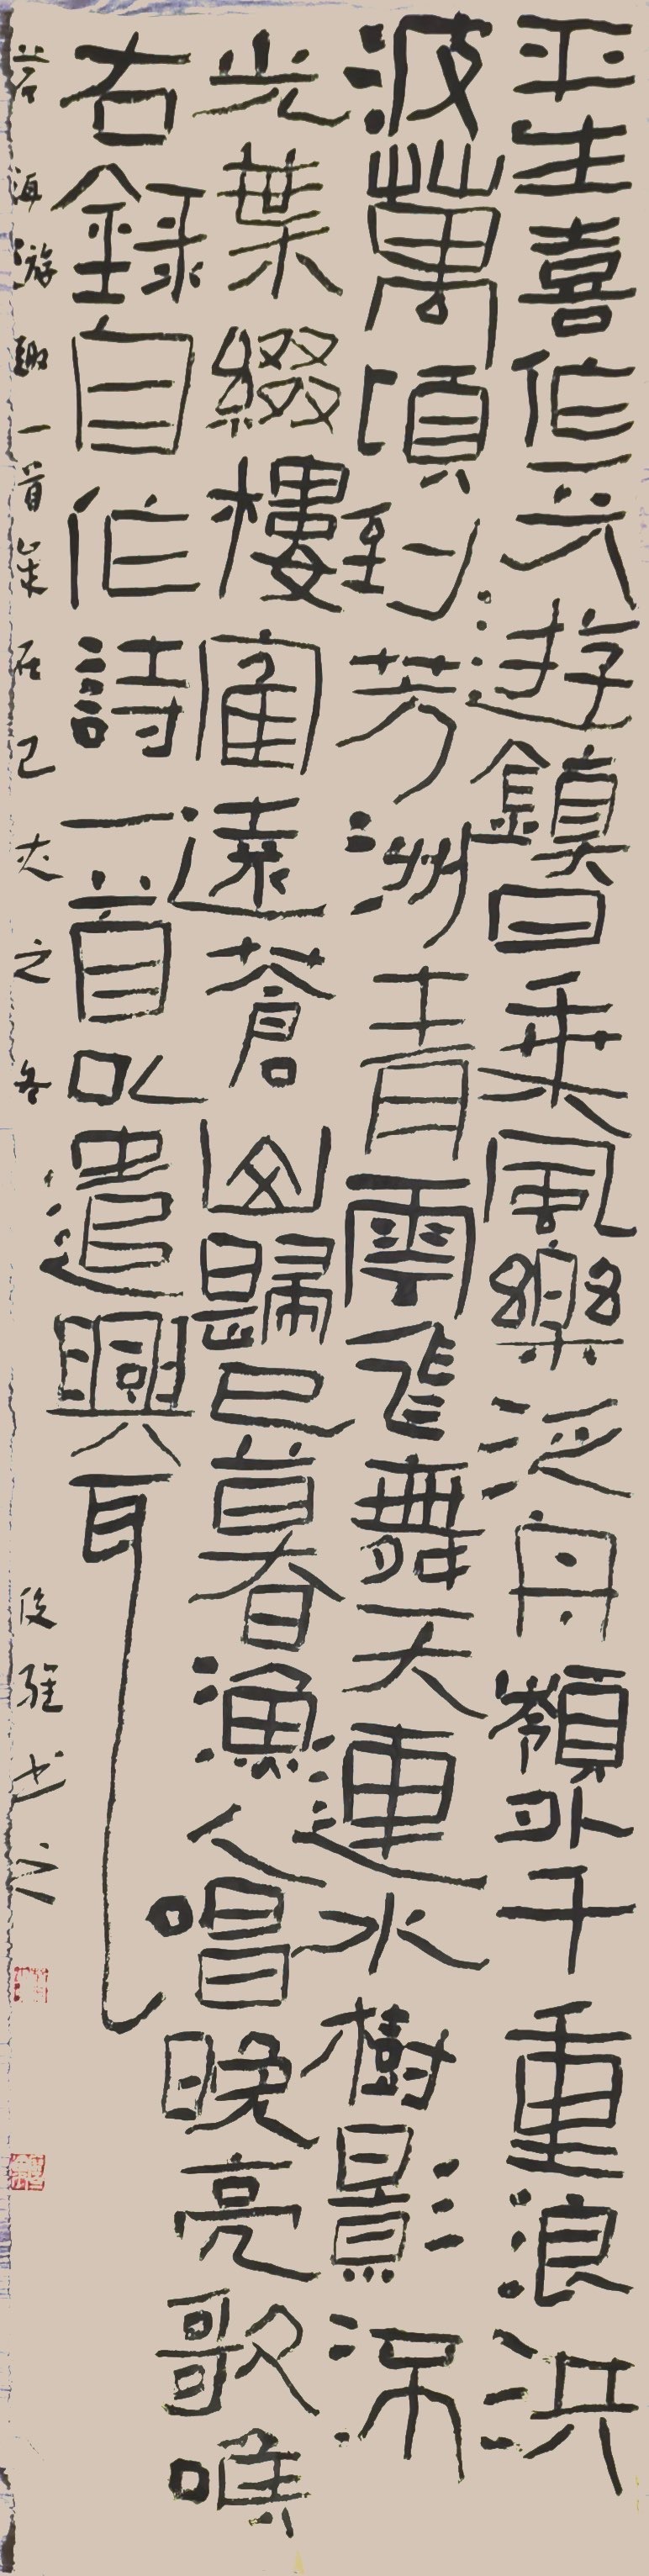 平生喜作五游鎮日乘風樂泛舟嶺外千重浪洪
波萬頃到芳洲青雲飛舞天連水樹影深
光葉綴樓寉遠蒼山歸已暮春漁人唱晚亮歌喉
右錄自作詩一首以遣興耳
海游趣一首
之冬
書之